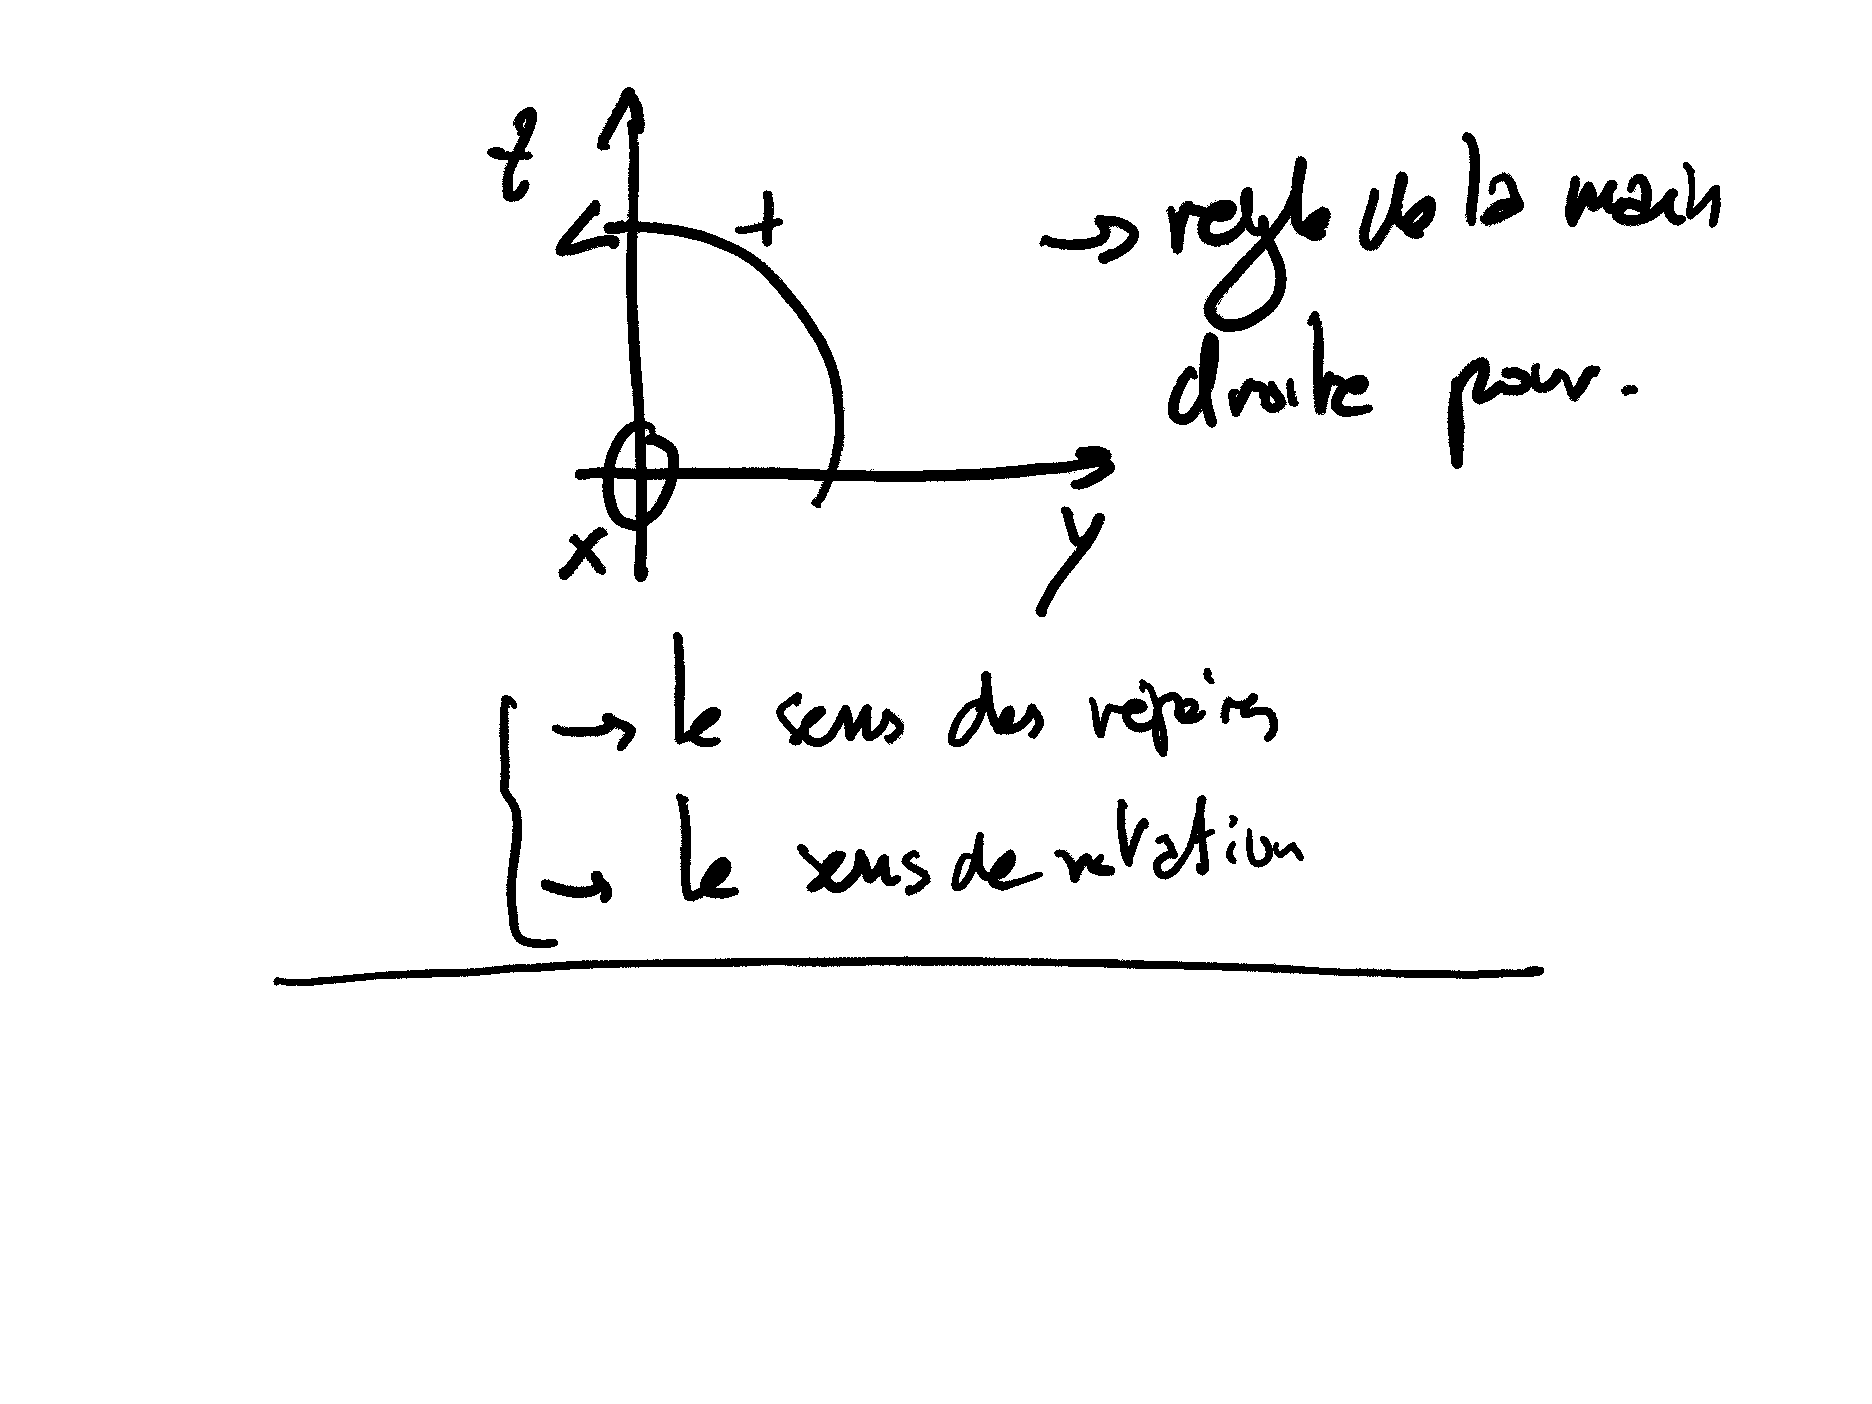 z
+
→ regle de la main
droite pour.
x
y
→ le sens des repères
→ le sens de rotation